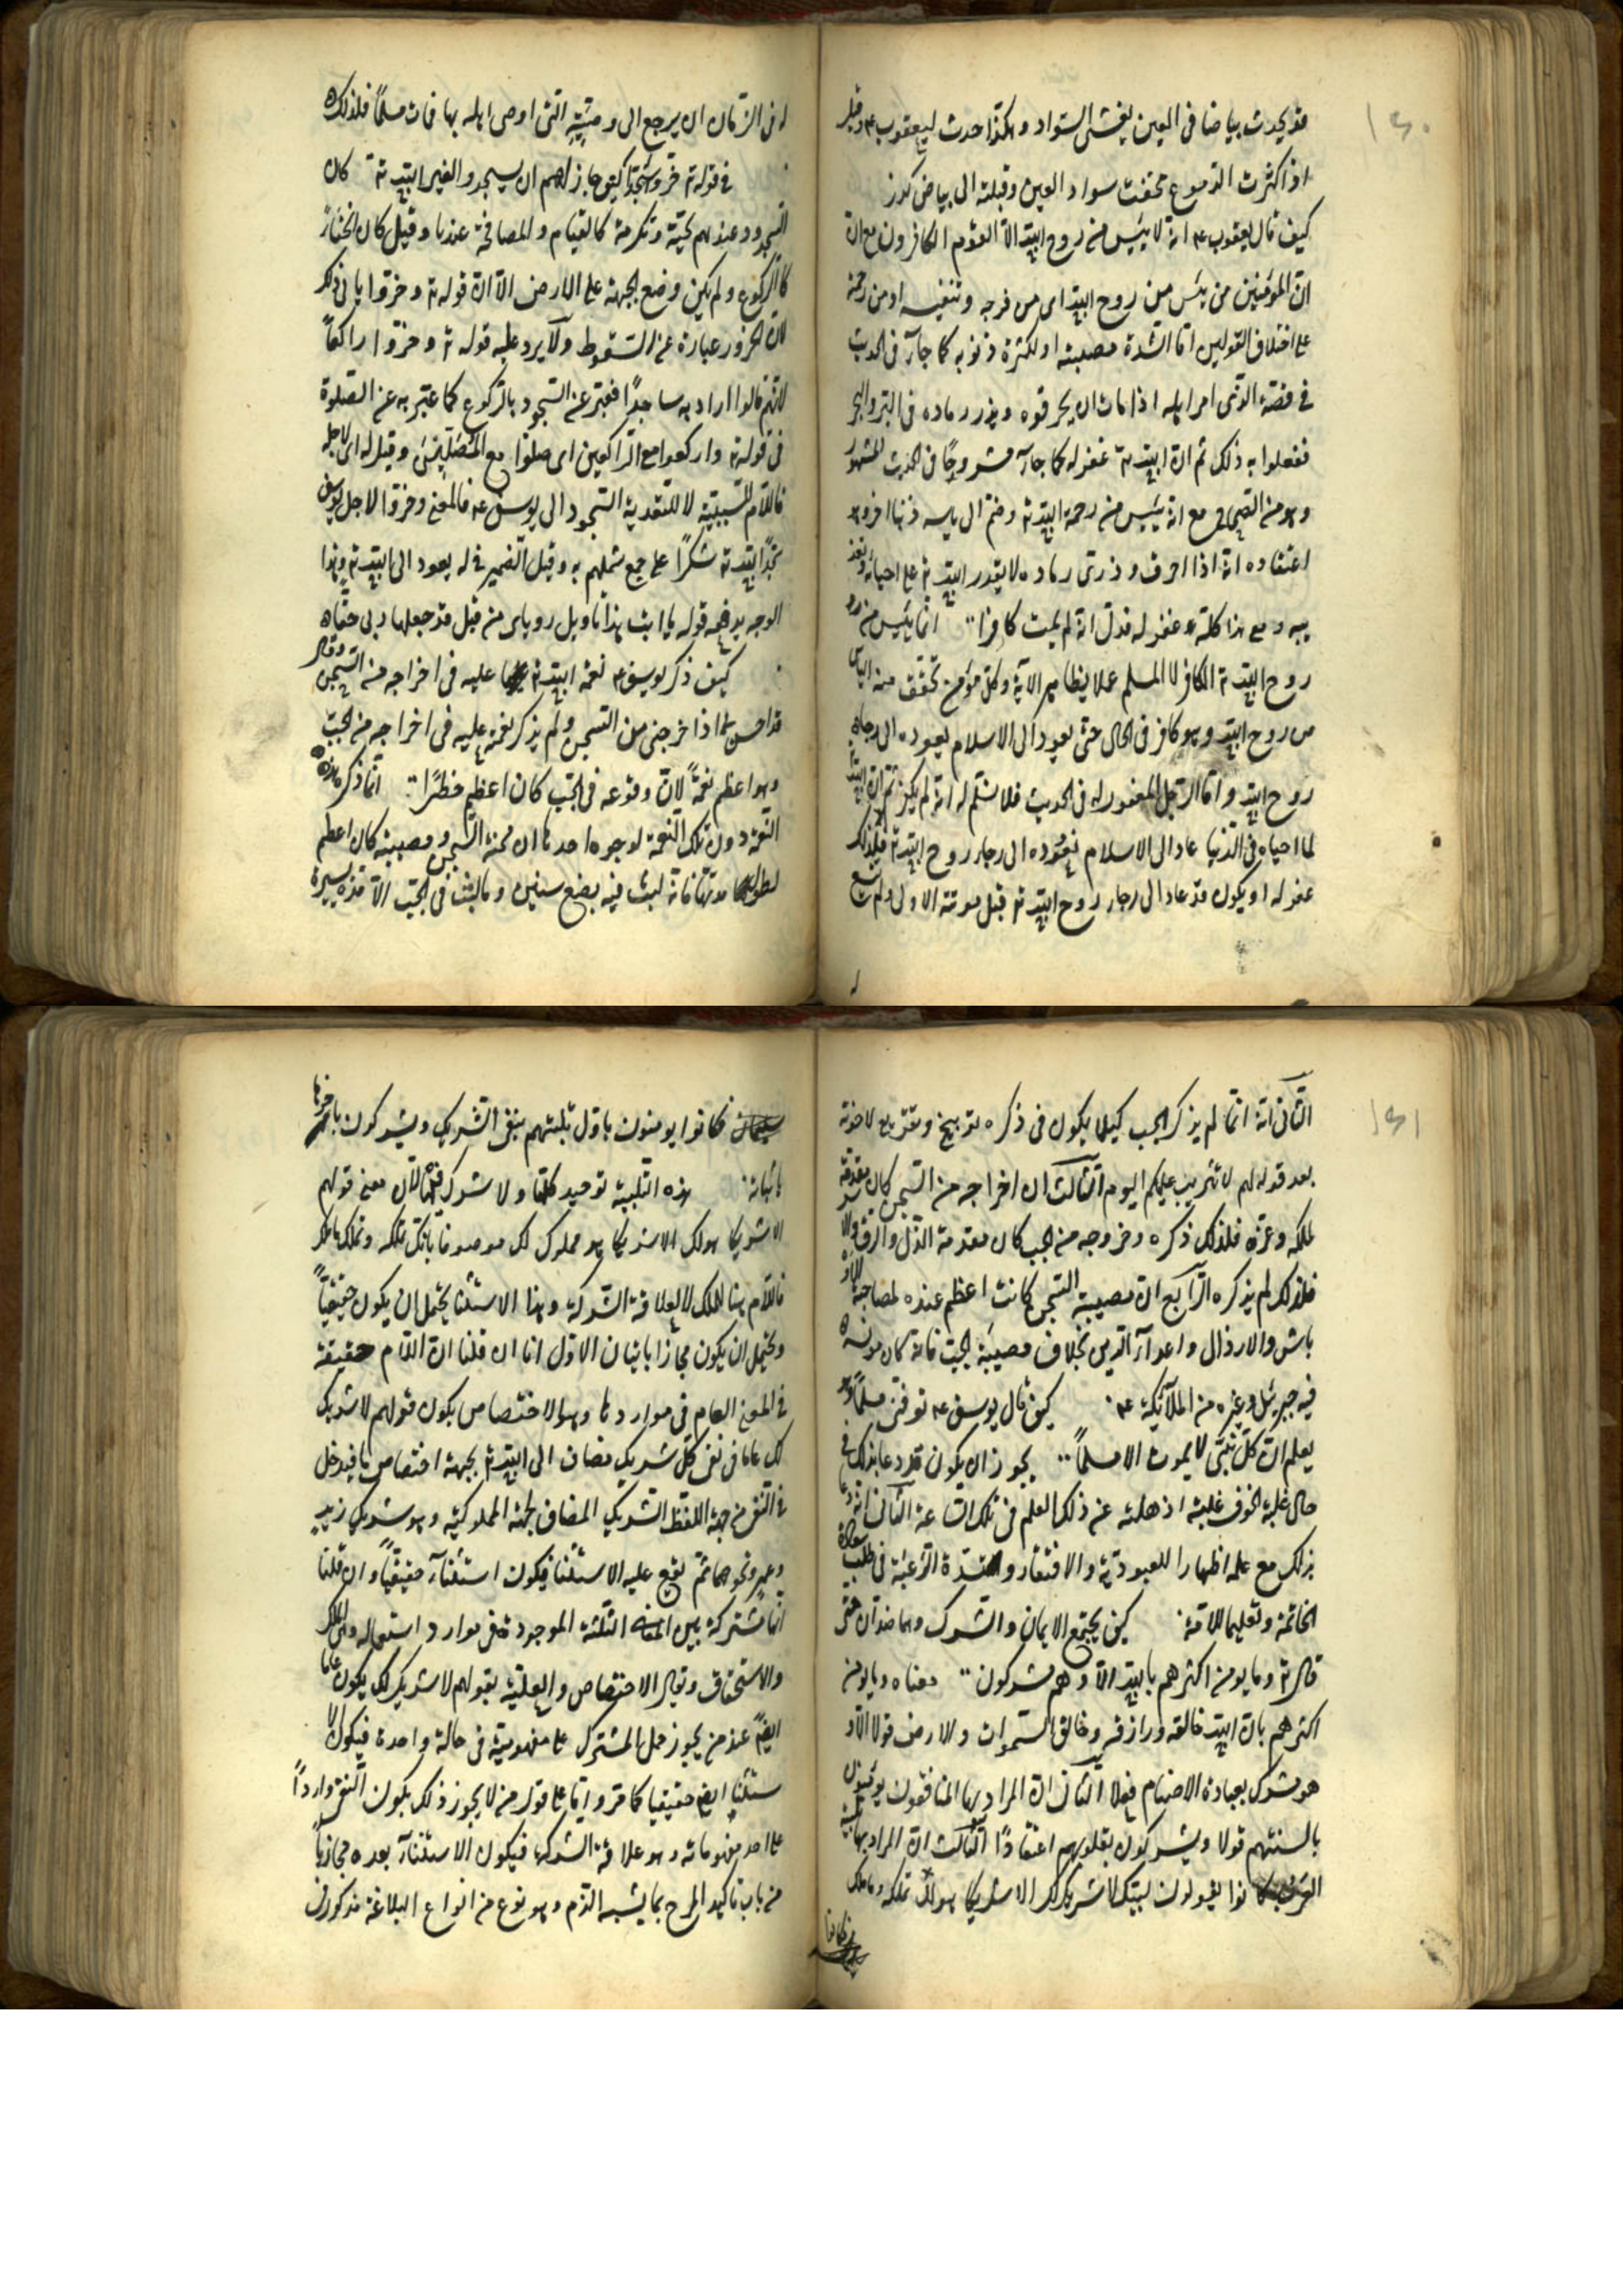 ١٤٠
قد يحدث بياضا فى العين يغشى السواد وهكذا حدث ليعقوب ع م وقيل
اذا كثرت الدموع محقت سواد العين وقلبته الى بياض كدر
كيف قال يعقوب ع م انه لا ييئس من روح الله الا القوم الكافرون مع ان
ان المؤمنين من يئس من روح الله اى من فرجه وتنفيسه او من رحمته
على اختلاف القولين اما لشدة مصيبته او لكثرة ذنوبه كما جاء فى الحديث
فى قصة الذى امر اهله اذا مات ان يحرقوه ويذر رماده فى البر والبحر
ففعلوا به ذلك ثم ان الله ت غفر له كما جاء مشروحا فى الحديث المشهور
وهو من الصحاح مع انه يئيس من رحمة الله ت وضم الى يأسه ذنبا اخر وهو
اعتقاده انه اذا احرق وذرى رماده لا يقدر الله ت على احيائه وتعذ
يبه ومع هذا كله غفر له فدل انه لم يمت كافرا انما ييئس من رو
روح الله ت الكافر لا المسلم عملا بظاهر الآية وكل مؤمن تحقق منه الياس
من روح الله وهو كافر فى الحال حتى يعود الى الاسلام بعوده الى رجاء
روح الله واما الرجل المغفور له فى الحديث فلا نسلم له انه لم يكن ثم ان الله
لما احياه فى الدنيا عاد الى الاسلام بعوده الى رجاء روح الله ت فلذلك
غفر له او يكون قد عاد الى رجاء روح الله ت قبل موته الاولى ولم يتسع
له فى الزمان ان يرجع الى وصيته التى اوصى اهله بها فمات مسلما فلذلك
فى قوله ت خروا سجدا كيف جاز لهم ان يسجدوا لغير الله ت كان
السجود عندهم تحية وتكرمة كالقيام والمصافحة عندنا وقيل كان انحناء
كالركوع ولم يكن وضع الجبهة على الارض الا ان قوله ت وخروا يابى ذلك
لان الخرور عبارة عن السقوط ولا يرد عليه قوله ت وخروا راكعا
لانهم قالوا اراد به ساجدا فعبر عن السجود بالركوع كما عبر به عن الصلوة
فى قوله ت واركعوا مع الراكعين اى صلوا مع المصلين وقيل له اى لاجله
فاللام للسببية لا للتعدية السجود الى يوسف ع م فالمعنى وخروا لاجل يوسف
سجدا لله ت شكرا على جمع شملهم به وقيل الضمير فى له يعود الى الله ت وهذا
الوجه يدفعه قوله يا ابت هذا تاويل روياى من قبل قد جعلها ربى حقا
كيف ذكر يوسف ع م نعمة الله ت عليه فى اخراجه من السجن وقال
قد احسن بى اذ اخرجنى من السجن ولم يذكر نعمة عليه فى اخراجه من الجب
وهو اعظم نعمة لان وقوعه فى الجب كان اعظم خطرا انما ذكر هذه
النعمة دون تلك النعمة لوجوه احدها ان محنة السجن ومصيبته كان اعظم
لطول مدتها فانه لبث فيه بضع سنين وما لبث فى الجب الا مدة يسيرة
١٤١
الثانى انه انما لم يذكر الجب كيلا يكون فى ذكره توبيخ وتقريع لاخوته
بعد قوله لهم لا تثريب عليكم اليوم الثالث ان اخراجه من السجن كان مقدمة
لملكه وعزه فلذلك ذكره وخروجه من الجب كان مقدمة الذل والرق والا
فلذلك لم يذكره الرابع ان مصيبة السجن كانت اعظم عنده لمصاحبة الاو
باش والارذال واعداء الدين بخلاف مصيبة الجب فانه كان مونسه
فيه جبرئيل وغيره من الملآئكة ع م كيف قال يوسف ع م توفنى مسلما وهو
يعلم ان كل نبى لا يموت الا مسلما يجوز ان يكون قد دعا بذلك فى
حال غلبة الخوف غلبة اذهلته عن ذلك العلم فى تلك الساعة الثانى انه دعا
بذلك مع علمه اظهارا للعبودية والافتقار وشدة الرغبة فى طلب سعادة
الخاتمة وتعليما للامة كيف يجتمع الايمان والشرك وهما ضدان حتى
قال ت وما يومن اكثرهم بالله الا وهم مشركون معناه وما يومن
اكثرهم بان الله خالقه ورازقه وخالق السموات والارض قولا الا و
هو مشرك بعبادة الاصنام فعلا الثانى ان المراد بها المنافقون يومنون
بالسنتهم قولا ويشركون بقلوبهم اعتقادا الثالث ان المراد بها تلبية
العرب كانوا يقولون لبيك لا شريك لك الا شريكا هو لك تملكه وما ملك
فكانوا
فكانوا يومنون باول تلبيتهم بنفى الشريك ويشركون باخرها
باثباته هذه التلبية توحيد كلها ولا شرك فيها لان معنى قولهم
الا شريكا هو لك الا شريكا هو مملوك لك موصوفا بانك تملكه وتملك ما ملك
فاللام هنا للملك لا لعلاقة الشركة وهذا الاستثنا يحتمل ان يكون حقيقيا
ويحتمل ان يكون مجازا بيان الاول انا ان قلنا ان اللام حقيقة
فى المعنى العام فى مواردها وهو الاختصاص يكون قولهم لا شريك
لك عاما فى نفى كل شريك مضاف الى الله ت بجهة اختصاص ما فيدخل
فى النفى من جهة اللفظ الشريك المضاف لجهة المملوكية وهو شريك زيد
وعمرو ونحوهما ثم يقع عليه الاستثنا فيكون استثناء حقيقيا وان قلنا
انها مشتركة بين المعانى الثلثة الموجودة فى موارد استعماله وهى الملك
والاستحقاق ويقال الاختصاص والعلية بقولهم لا شريك لك يكون عاما
ايضا عند من يجوز حمل المشترك على مفهوميه فى حالة واحدة فيكون الا
ستثنا ايضا حقيقيا كما مر واما على قول من لا يجوز ذلك يكون النفى واردا
على احد مفهوماته وهو علاقة الشركة فيكون الاستثناء بعده مجازيا
من باب تاكيد المدح بما يشبه الذم وهو نوع من انواع البلاغة مذكور فى